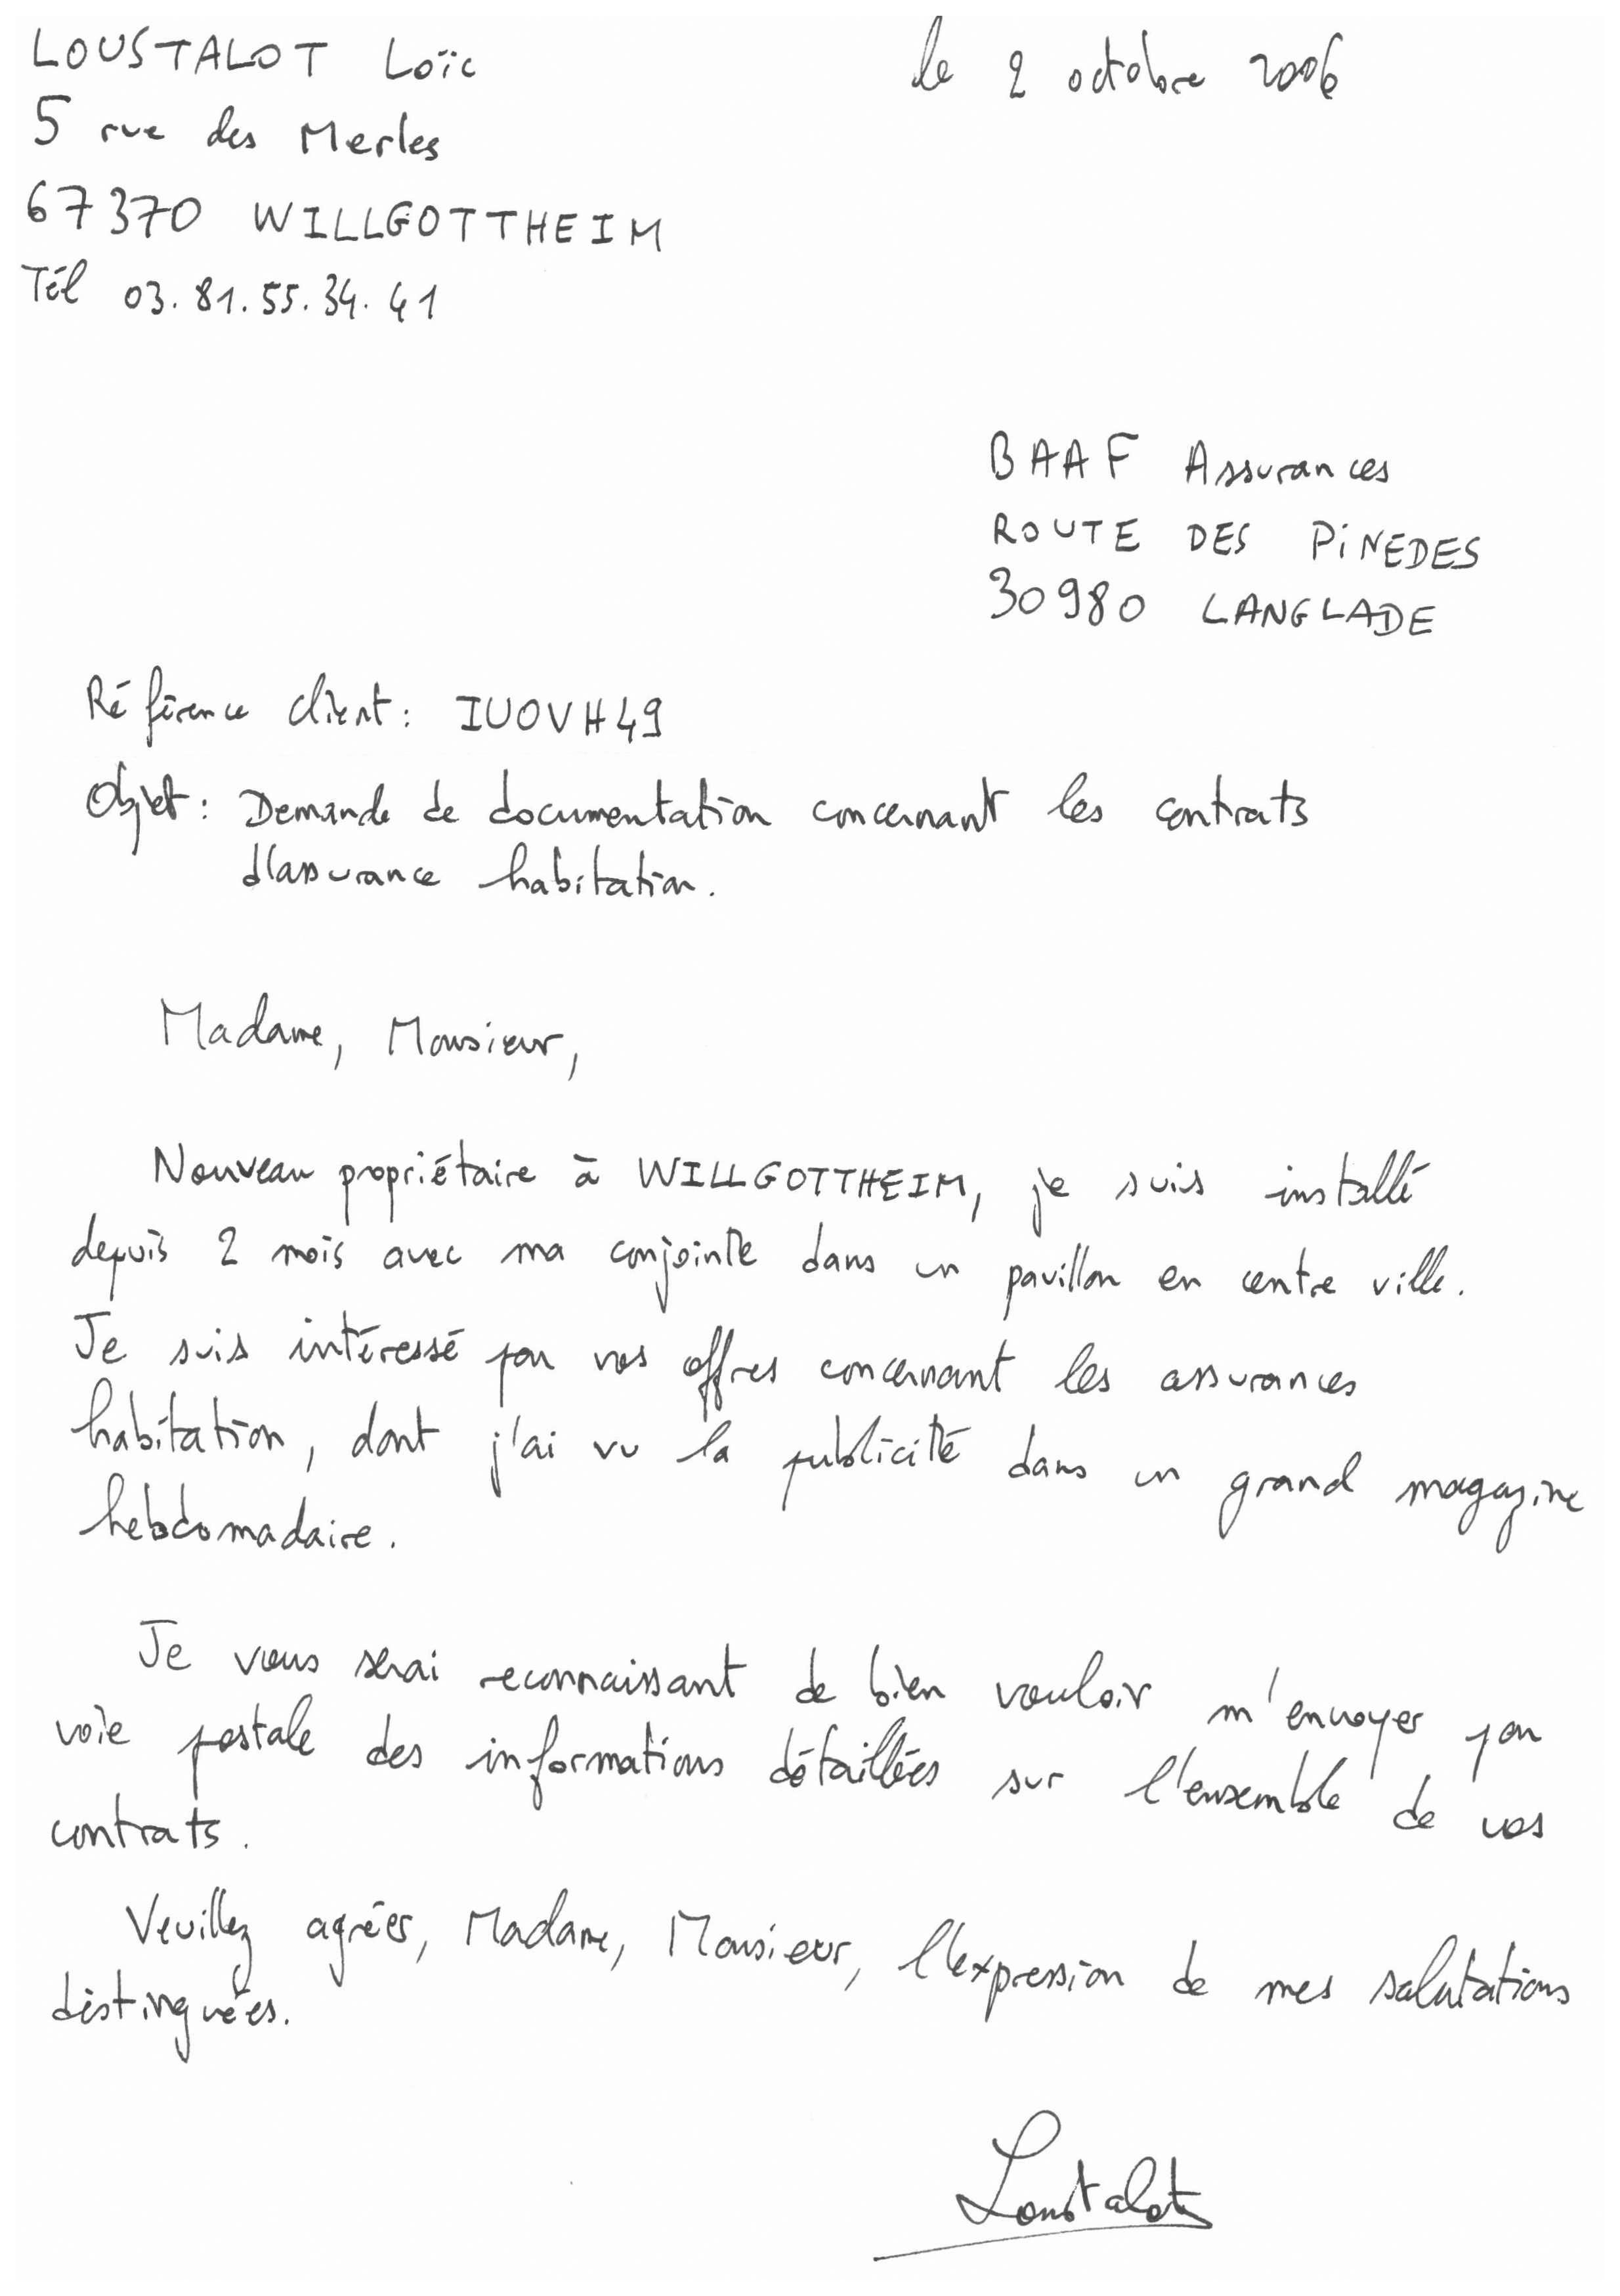 LOUSTALOT Loïc
le 2 octobre 2006
5 rue des Merles
67370 WILLGOTTHEIM
Tél 03.81.55.34.41
BAAF Assurances
ROUTE DES PINEDES
30980 LANGLADE
Référence client : IUOVH49
Objet : Demande de documentation concernant les contrats
d'assurance habitation.
Madame, Monsieur,
Nouveau propriétaire à WILLGOTTHEIM, je suis installé
depuis 2 mois avec ma conjointe dans un pavillon en centre ville.
Je suis intéressé par vos offres concernant les assurances
habitation, dont j'ai vu la publicité dans un grand magazine
hebdomadaire.
Je vous serai reconnaissant de bien vouloir m'envoyer par
voie postale des informations détaillées sur l'ensemble de vos
contrats.
Veuillez agréer, Madame, Monsieur, l'expression de mes salutations
distinguées.
Loustalot